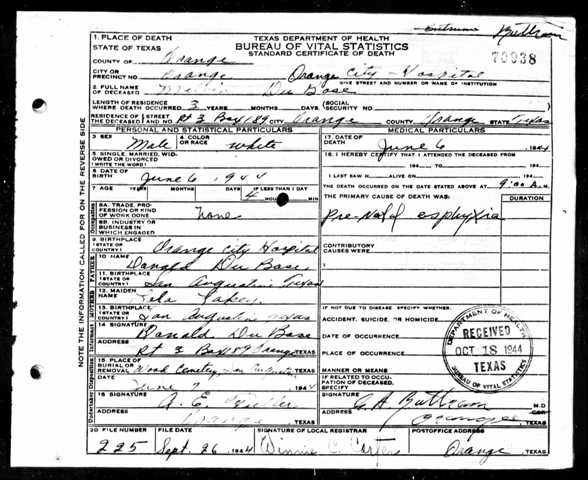 Buttram
1. PLACE OF DEATH
STATE OF TEXAS
TEXAS DEPARTMENT OF HEALTH
BUREAU OF VITAL STATISTICS
STANDARD CERTIFICATE OF DEATH
70938
COUNTY OF Orange
CITY OR PRECINCT NO. Orange Orange City Hospital
GIVE STREET AND NUMBER OR NAME OF INSTITUTION
2. FULL NAME OF DECEASED Du Bose
LENGTH OF RESIDENCE WHERE DEATH OCCURRED 3 YEARS MONTHS DAYS (SOCIAL SECURITY NO.)
RESIDENCE OF THE DECEASED STREET AND NO. Rt 3 Box 189 CITY Orange COUNTY Orange STATE Texas
PERSONAL AND STATISTICAL PARTICULARS
MEDICAL PARTICULARS
3. SEX Male 4. COLOR OR RACE white
17. DATE OF DEATH June 6 1944
5. SINGLE, MARRIED, WIDOWED OR DIVORCED (WRITE THE WORD)
18. I HEREBY CERTIFY THAT I ATTENDED THE DECEASED FROM
194 TO 194
6. DATE OF BIRTH June 6 1944
I LAST SAW H ALIVE ON 194
7. AGE YEARS MONTHS DAYS IF LESS THAN 1 DAY
4 HOURS MIN
THE DEATH OCCURRED ON THE DATE STATED ABOVE AT 9:00 A.M.
THE PRIMARY CAUSE OF DEATH WAS: DURATION
8A. TRADE, PROFESSION OR KIND OF WORK DONE none
Pre-natal asphyxia
8B. INDUSTRY OR BUSINESS IN WHICH ENGAGED
9. BIRTHPLACE (STATE OR COUNTRY) Orange City Hospital
CONTRIBUTORY CAUSES WERE:
10. NAME Donald Du Bose
11. BIRTHPLACE (STATE OR COUNTRY) San Augustine Texas
12. MAIDEN NAME
IF NOT DUE TO DISEASE SPECIFY WHETHER:
13. BIRTHPLACE (STATE OR COUNTRY) San Augustine Texas
ACCIDENT, SUICIDE, OR HOMICIDE
14. SIGNATURE Donald Du Bose
DATE OF OCCURRENCE
ADDRESS Rt 3 Box 189 Orange TEXAS
PLACE OF OCCURRENCE
15. PLACE OF BURIAL OR REMOVAL Cemetery, San Augustine TEXAS
MANNER OR MEANS
IF RELATED TO OCCUPATION OF DECEASED, SPECIFY
DATE June 7 1944
16. SIGNATURE A. E.
SIGNATURE G. A Buttram M.D.
ADDRESS Orange TEXAS
ADDRESS Orange TEXAS
20. FILE NUMBER FILE DATE SIGNATURE OF LOCAL REGISTRAR POSTOFFICE ADDRESS
225 Sept. 26 1944 Winnie C. Carter Orange, TEXAS
DEPARTMENT OF HEALTH
RECEIVED
OCT 18 1944
TEXAS
BUREAU OF VITAL STATISTICS
NOTE THE INFORMATION CALLED FOR ON THE REVERSE SIDE
Occupation
FATHER
MOTHER
Informant
Undertaker Disposition